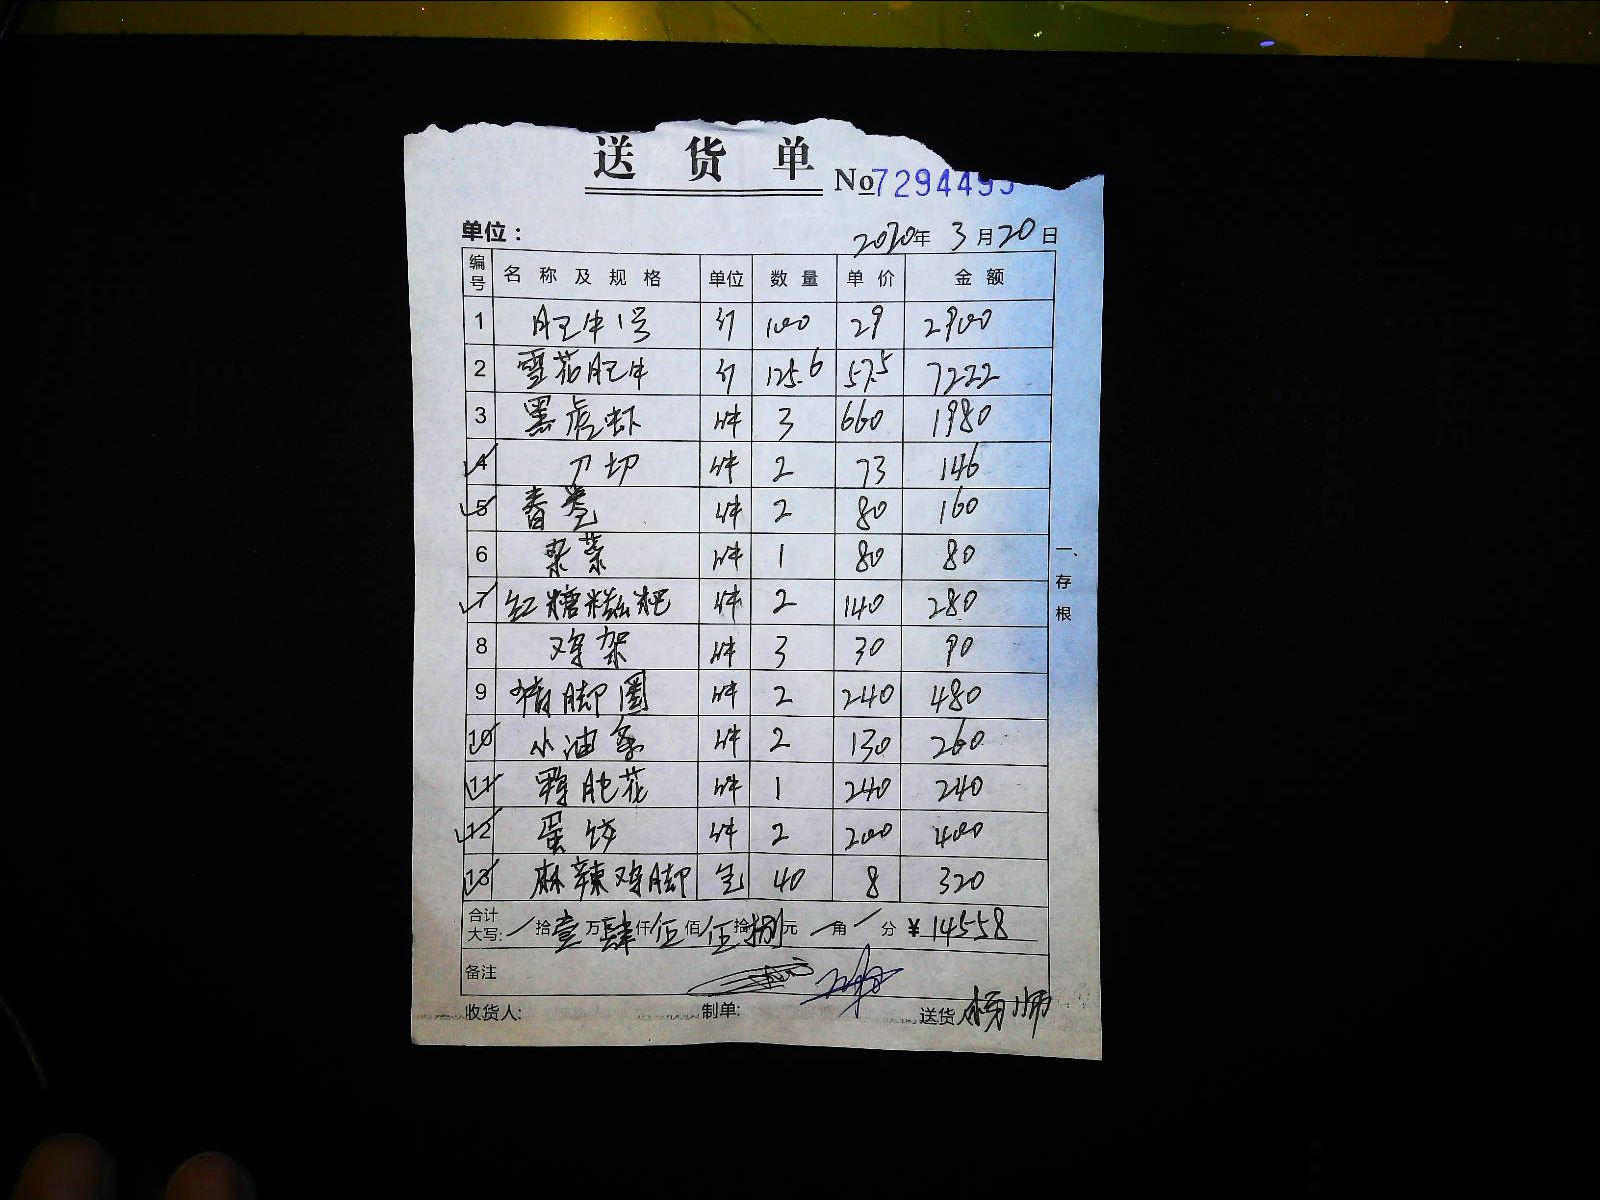 送货单
No7294495
单位：
2020年 3月20日
编号 名称及规格 单位 数量 单价 金额
1 肥牛1号 斤 100 29 2900
2 雪花肥牛 斤 125.6 57.5 7222
3 黑虎虾 件 3 660 1980
4 刀切 件 2 73 146
5 春卷 件 2 80 160
6 菜 件 1 80 80
7 红糖糍粑 件 2 140 280
8 鸡架 件 3 30 90
9 猪脚圈 件 2 240 480
10 小油条 件 2 130 260
11 肫花 件 1 240 240
12 蛋饺 件 2 200 400
13 麻辣鸡脚 包 40 8 320
合计大写: / 拾 壹 万 肆 仟 伍 佰 伍 拾 捌 元 / 角 / 分 ¥ 14558
备注
收货人: 制单: 送货人 杨师
一、存根